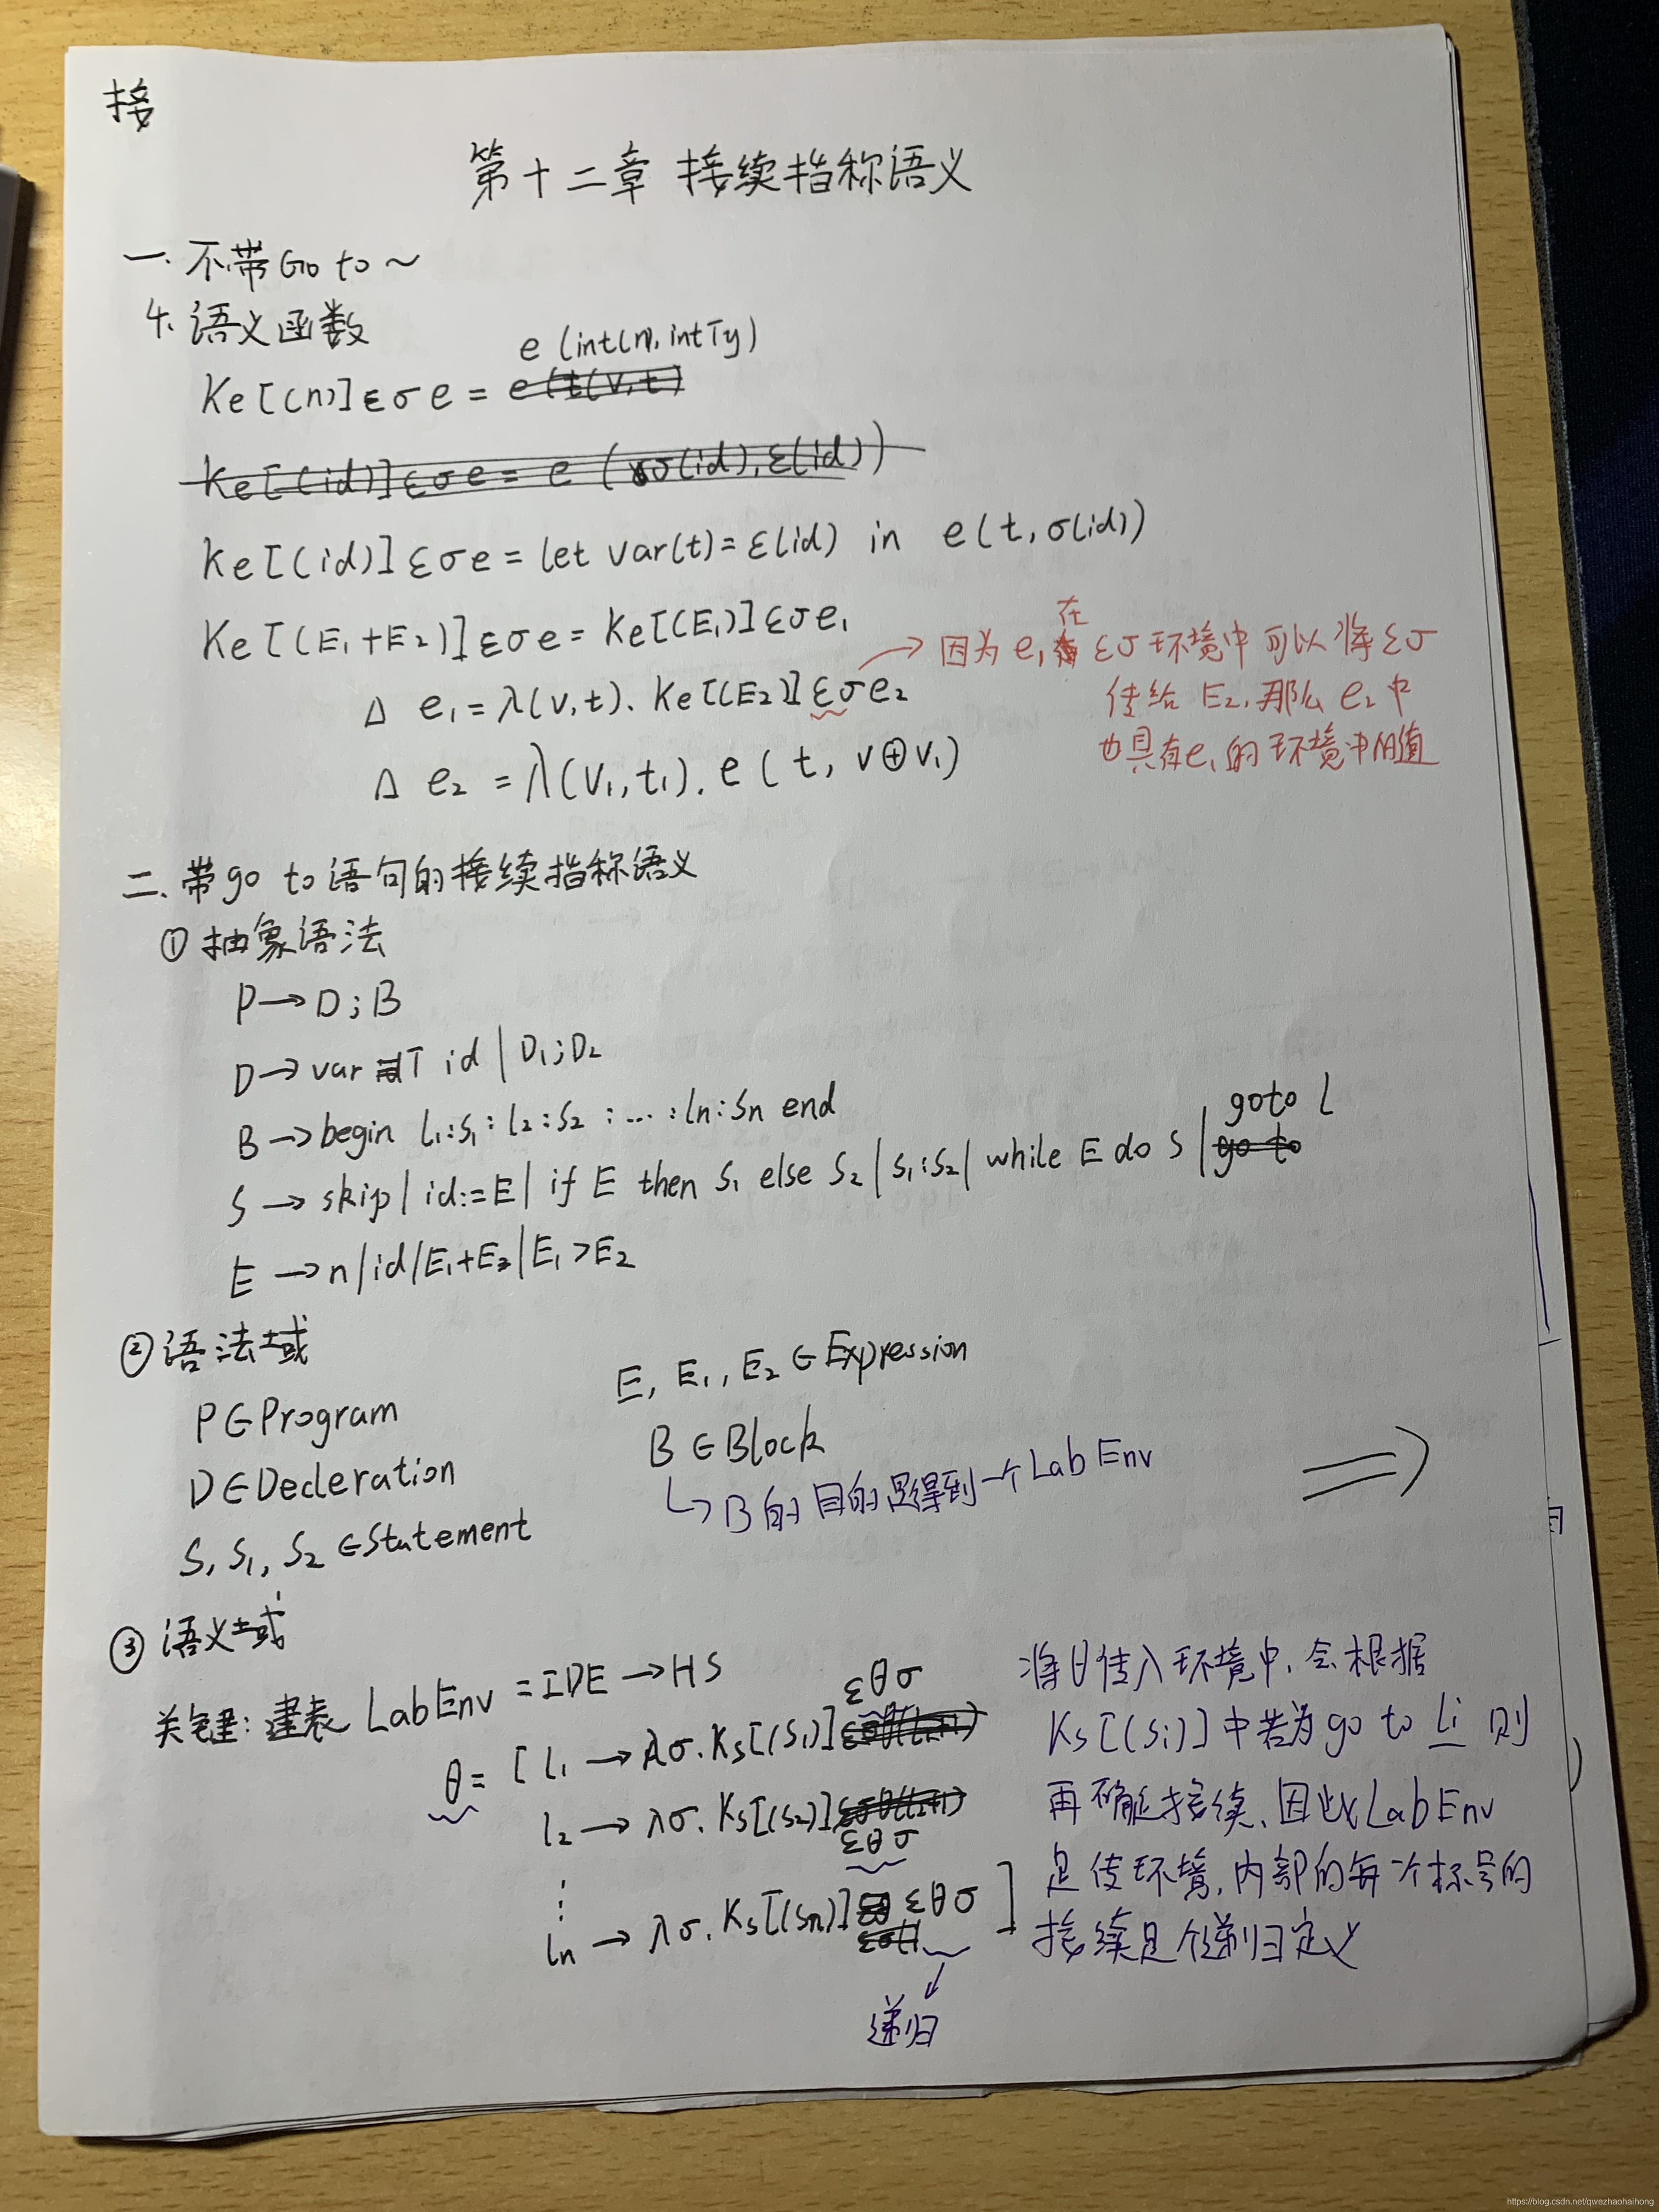 接
第十二章 接续指称语义
一. 不带Go to ~
4. 语义函数
e (int(n), intTy)
Ke[(n)] εσe = e (t(v,t)
Ke[(id)] εσe = e (σ(id), ε(id))
Ke[(id)] εσe = let var(t) = ε(id) in e(t, σ(id))
Ke[(E₁+E₂)] εσe = Ke[(E₁)] εσe₁
△ e₁ = λ(v,t). Ke[(E₂)] εσe₂
△ e₂ = λ(v₁,t₁). e ( t, v⊕v₁)
→ 因为e₁在εσ环境中可以将εσ
传给E₂, 那么e₂中
也具有e₁的环境中的值
二. 带go to语句的接续指称语义
① 抽象语法
P→D;B
D→var T id | D₁;D₂
B→begin l₁:S₁: l₂:S₂ : ... : ln:Sn end
S→skip | id:=E | if E then S₁ else S₂ | S₁;S₂ | while E do S | go to goto L
E→n | id | E₁+E₂ | E₁>E₂
② 语法域
P∈Program
D∈Decleration
S, S₁, S₂ ∈Statement
E, E₁, E₂ ∈Expression
B∈Block
↳ B的目的是得到一个LabEnv
⇒
③ 语义域
关键: 建表 LabEnv = IDE→HS
θ= [ l₁ → λσ. Ks[(S₁)] εθσ
l₂ → λσ. Ks[(S₂)] εθσ
⋮
ln → λσ. Ks[(Sn)] εθσ ]
递归
将θ传入环境中, 会根据
Ks[(Si)]中若为go to Li 则
再确定接续, 因此LabEnv
是传环境, 内部的每个标号的
接续是个递归定义
https://blog.csdn.net/qwezhaohaihong